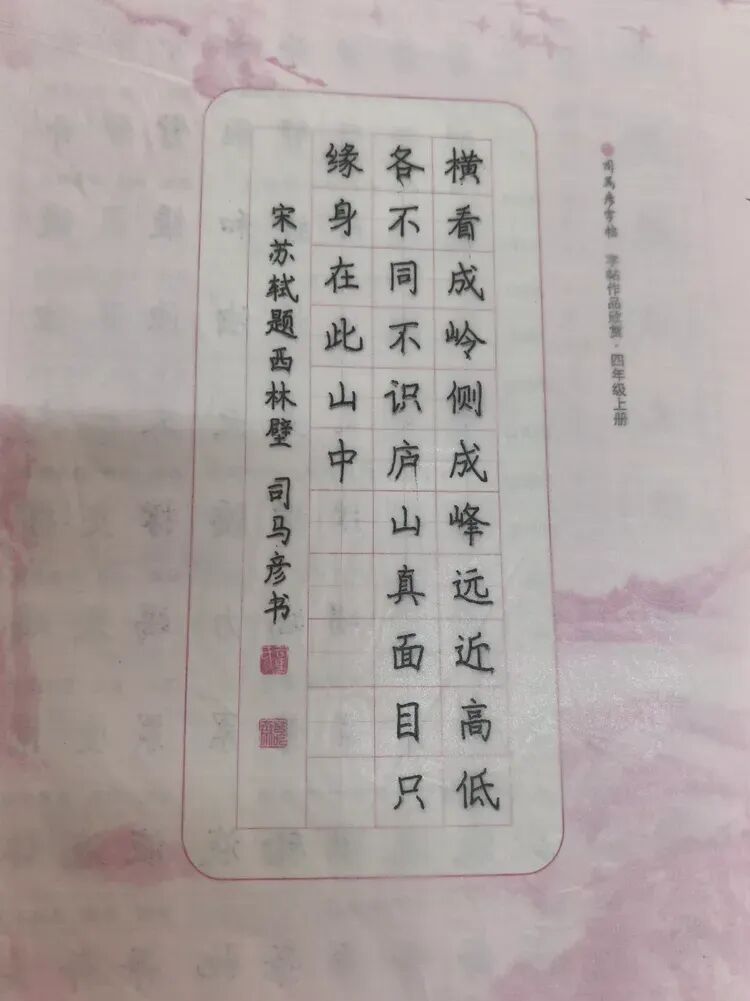 司马彦字帖 字帖作品欣赏·四年级上册
横看成岭侧成峰远近高低
各不同不识庐山真面目只
缘身在此山中
宋苏轼题西林壁 司马彦书